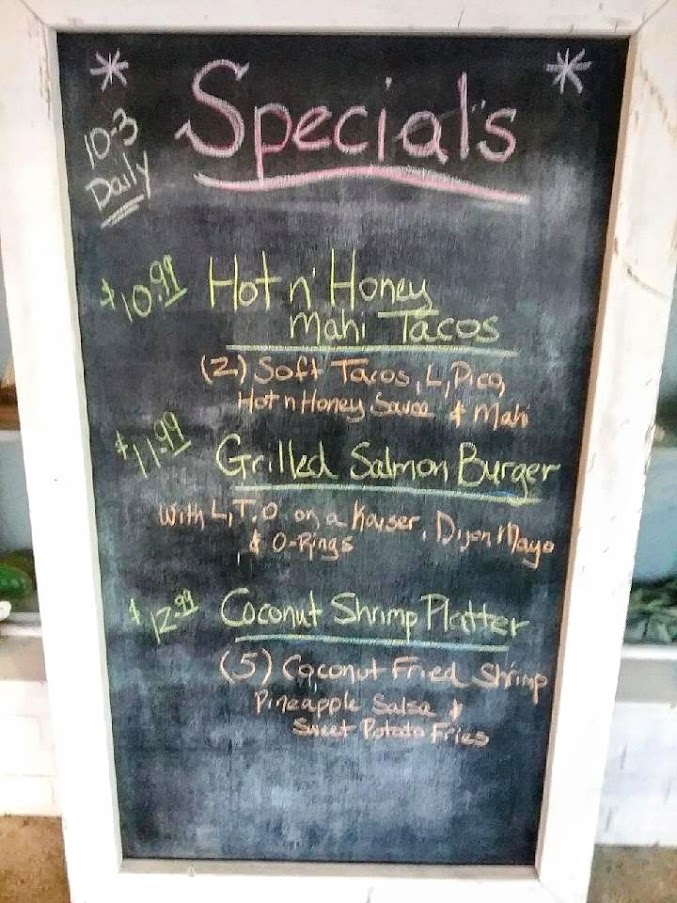 * Special's *
10-3
Daily
$10.99 Hot n' Honey
Mahi Tacos
(2) Soft Tacos, L, Pico,
Hot n Honey Sauce & Mahi
$11.99 Grilled Salmon Burger
With L, T, O on a Kaiser, Dijon Mayo
& O-Rings
$12.99 Coconut Shrimp Platter
(5) Coconut Fried Shrimp
Pineapple Salsa &
Sweet Potato Fries